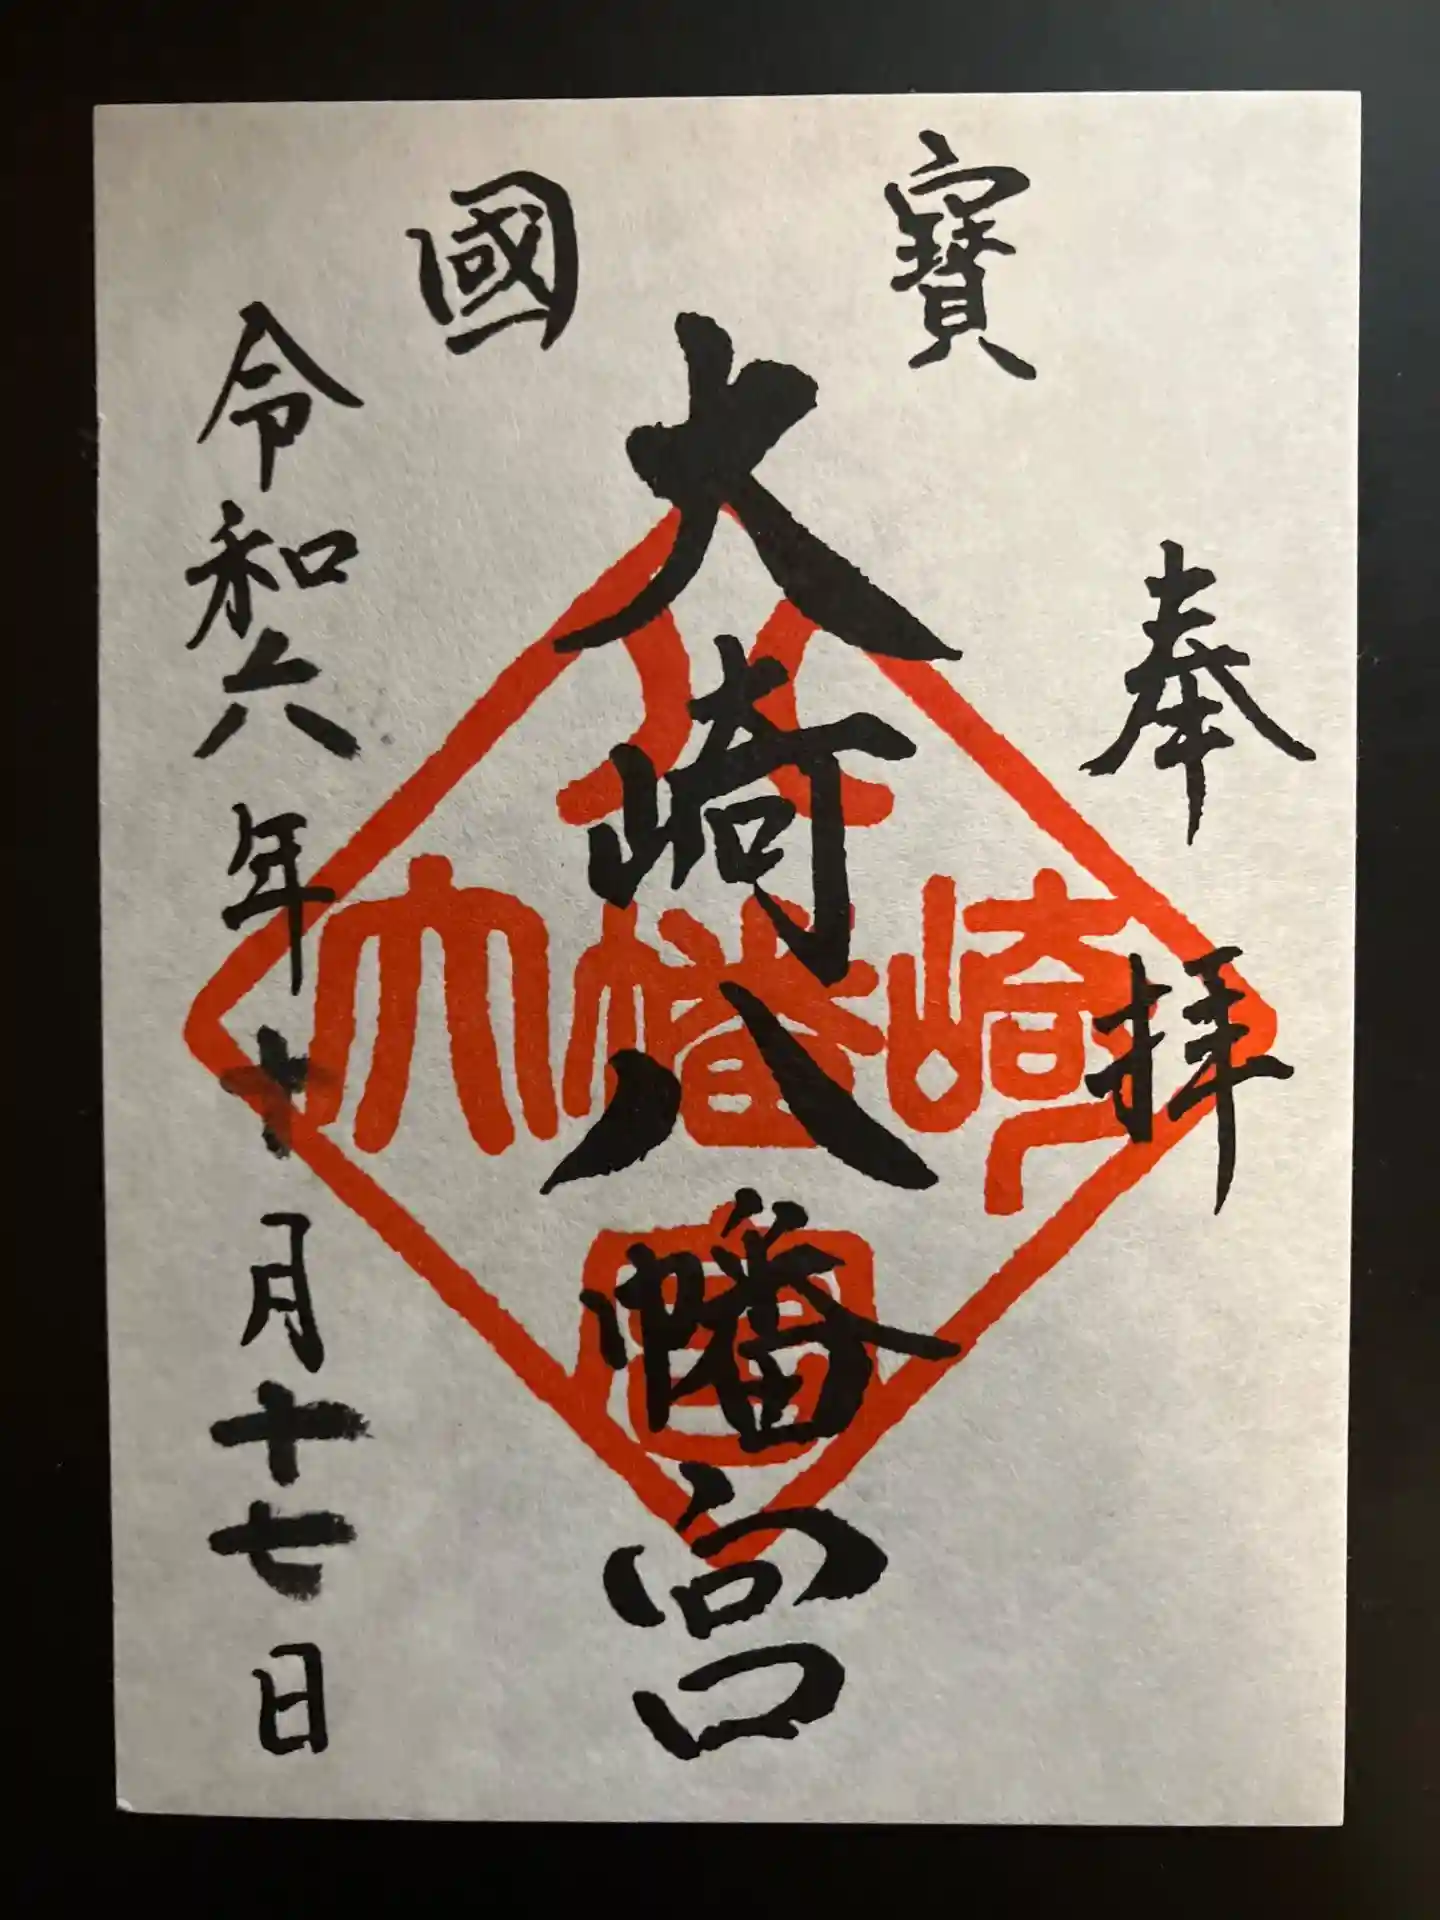 奉拝
國寶
大崎八幡宮
令和六年十月十七日
八
大幡崎
宮